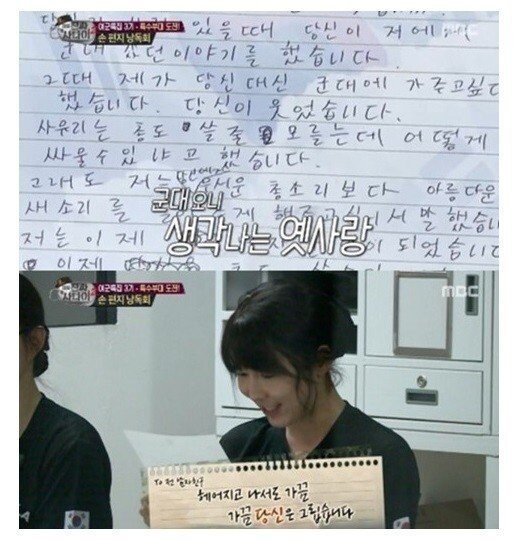 진짜 사나이
여군특집 3기 - 특수부대 도전!
손 편지 낭독회
MBC
있을때 당신이 저에게
이야기를 했습니다.
그때 제가 당신 대신 군대에 가주고싶다
했습니다. 당신이 웃었습니다.
사유리는 총도 쏠 줄 모르는데 어떻게
싸울수 있냐고 했습니다.
그래도 저는 총소리보다 아름다운
새 소리를 말했습니
저는 이제 되었습니다
이제
군대 오니
생각나는 옛사랑
진짜 사나이
여군특집 3기 - 특수부대 도전!
손 편지 낭독회
MBC
To 전 남자친구
헤어지고 나서도 가끔
가끔 당신은 그립습니다